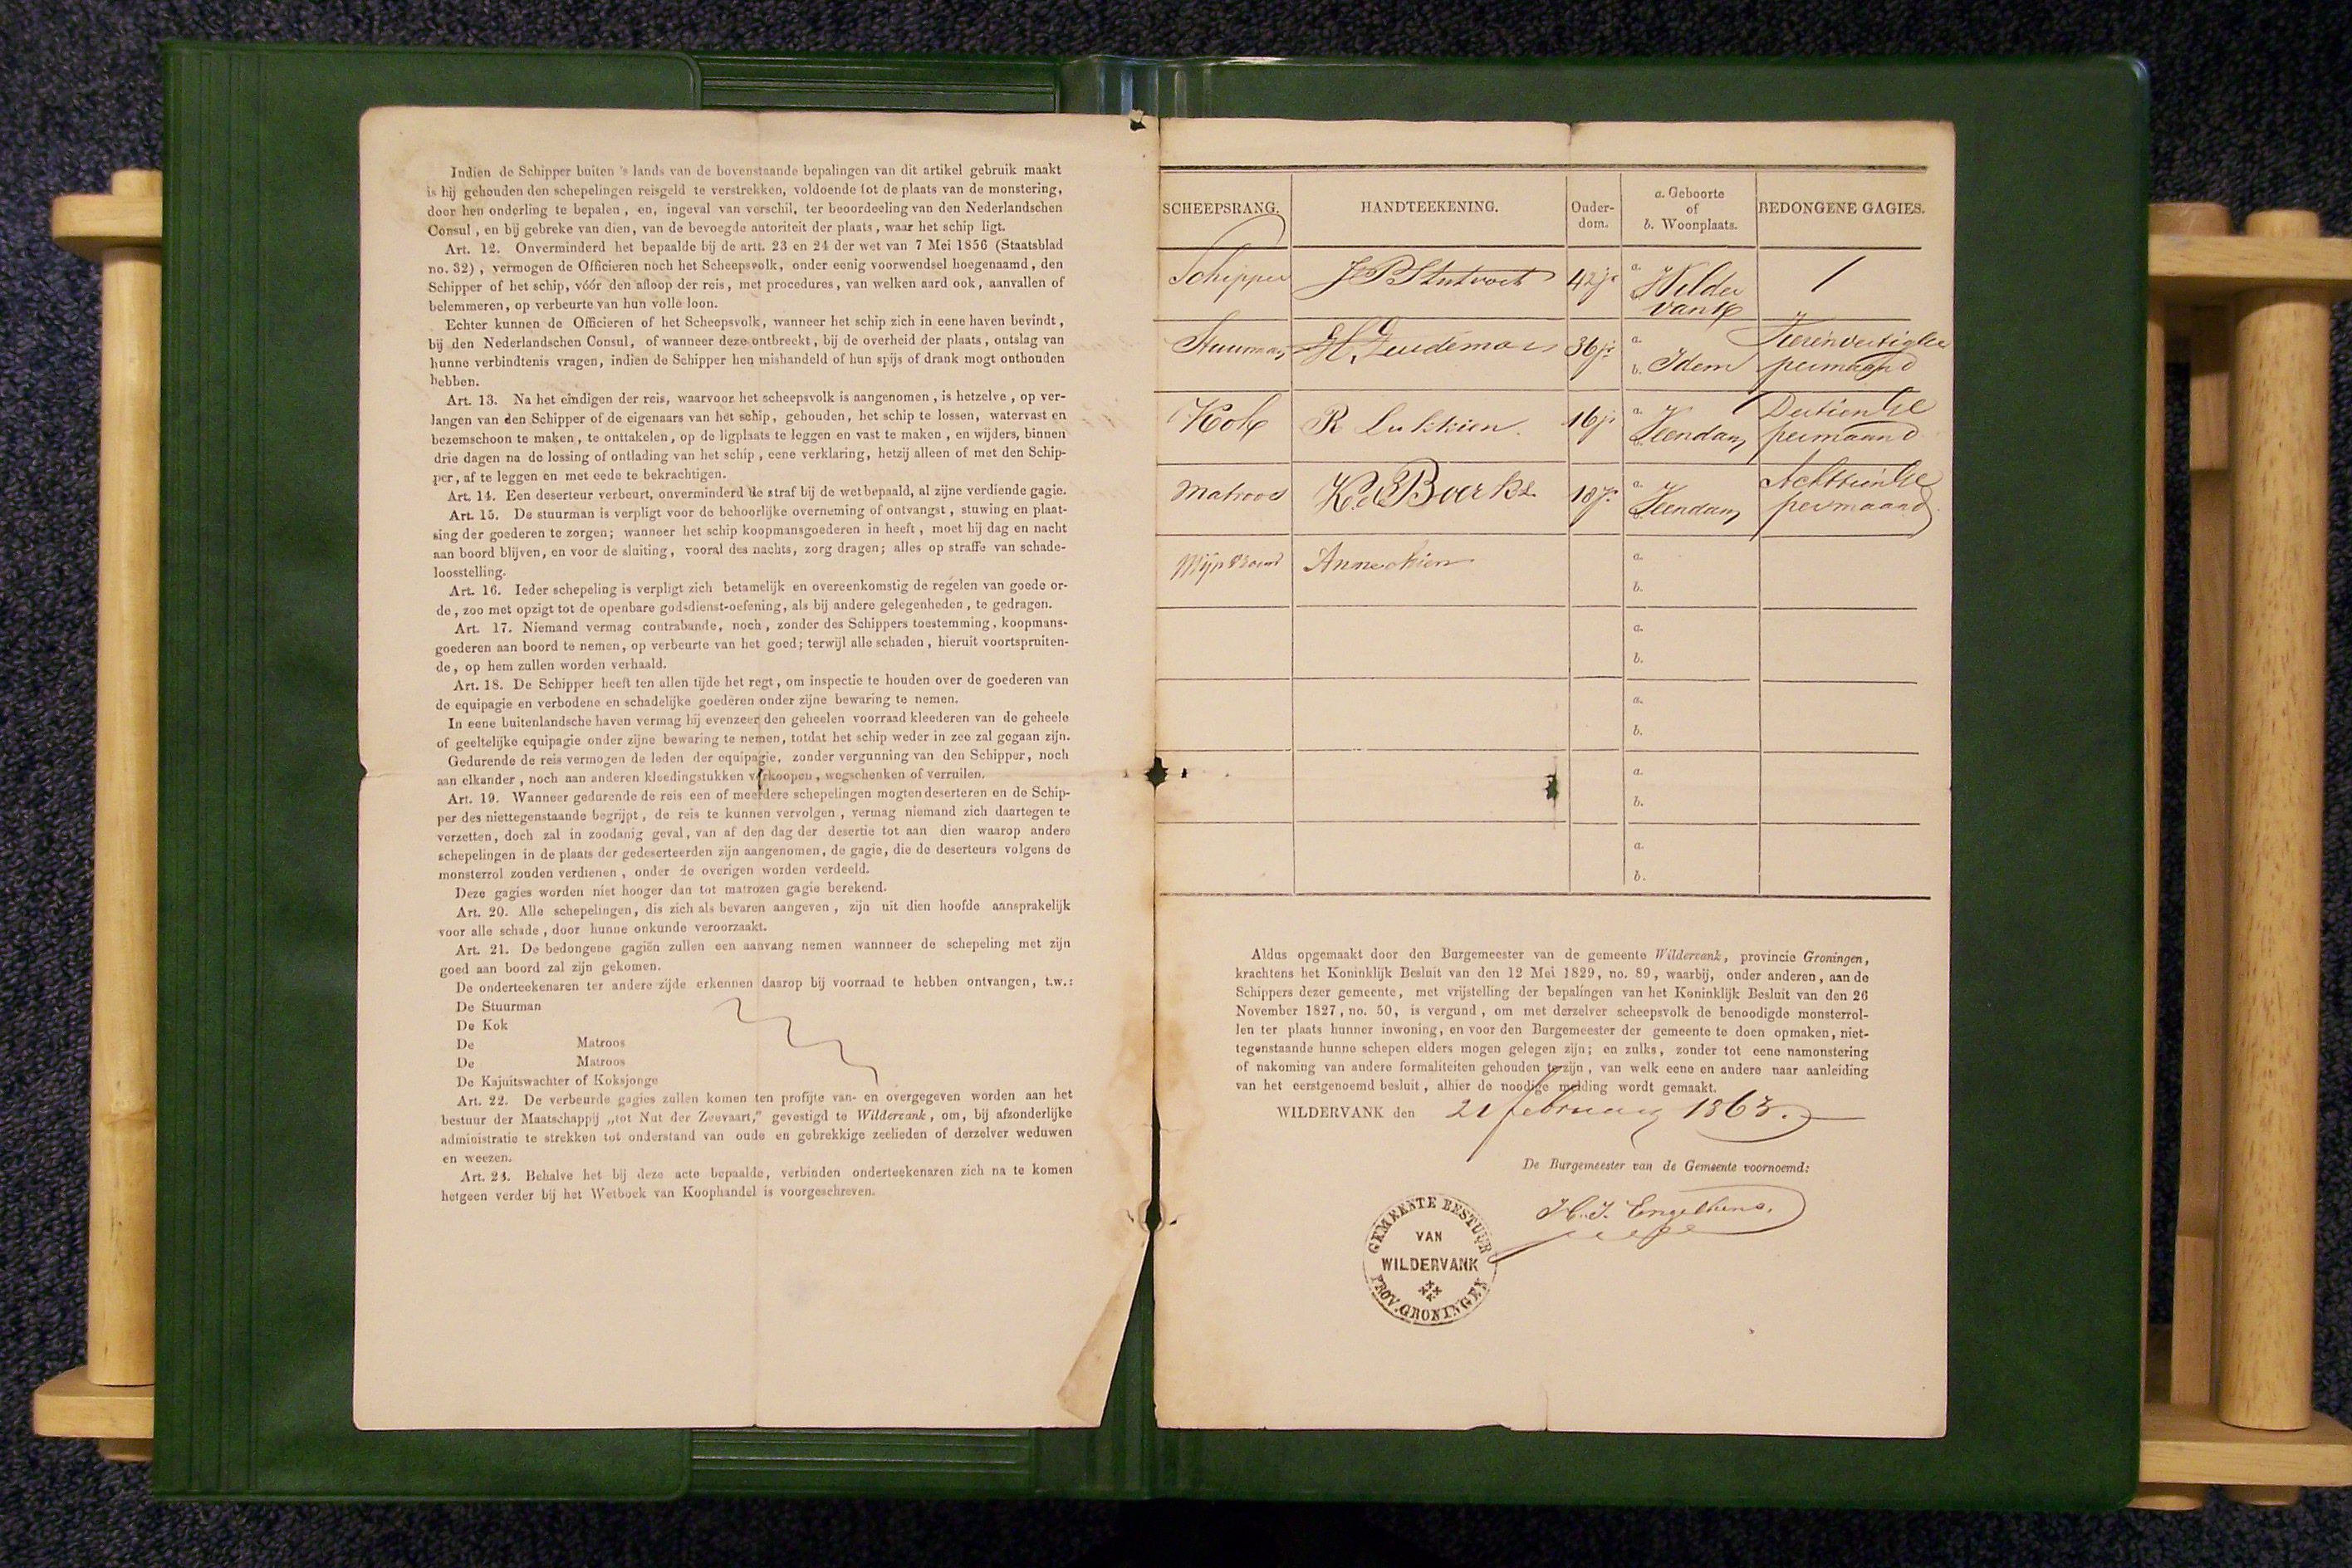 Indien de Schipper buiten 's lands van de bovenstaande bepalingen van dit artikel gebruik maakt
is hij gehouden den schepelingen reisgeld te verstrekken, voldoende tot de plaats van de monstering,
door hen onderling te bepalen, en, ingeval van verschil, ter beoordeeling van den Nederlandschen
Consul, en bij gebreke van dien, van de bevoegde autoriteit der plaats, waar het schip ligt.
Art. 12. Onverminderd het bepaalde bij de artt. 23 en 24 der wet van 7 Mei 1856 (Staatsblad
no. 32), vermogen de Officieren noch het Scheepsvolk, onder eenig voorwendsel hoegenaamd, den
Schipper of het schip, vóór den afloop der reis, met procedures, van welken aard ook, aanvallen of
belemmeren, op verbeurte van hun volle loon.
Echter kunnen de Officieren of het Scheepsvolk, wanneer het schip zich in eene haven bevindt,
bij den Nederlandschen Consul, of wanneer deze ontbreekt, bij de overheid der plaats, ontslag van
hunne verbindtenis vragen, indien de Schipper hen mishandeld of hun spijs of drank mogt onthouden
hebben.
Art. 13. Na het eindigen der reis, waarvoor het scheepsvolk is aangenomen, is hetzelve, op ver-
langen van den Schipper of de eigenaars van het schip, gehouden, het schip te lossen, watervast en
bezemschoon te maken, te onttakelen, op de ligplaats te leggen en vast te maken, en wijders, binnen
drie dagen na de lossing of ontlading van het schip, eene verklaring, hetzij alleen of met den Schip-
per, af te leggen en met eede te bekrachtigen.
Art. 14. Een deserteur verbeurt, onverminderd de straf bij de wet bepaald, al zijne verdiende gagie.
Art. 15. De stuurman is verpligt voor de behoorlijke overneming of ontvangst, stuwing en plaat-
sing der goederen te zorgen; wanneer het schip koopmansgoederen in heeft, moet hij dag en nacht
aan boord blijven, en voor de sluiting, vooral des nachts, zorg dragen; alles op straffe van schade-
loosstelling.
Art. 16. Ieder schepeling is verpligt zich betamelijk en overeenkomstig de regelen van goede or-
de, zoo met opzigt tot de openbare godsdienst-oefening, als bij andere gelegenheden, te gedragen.
Art. 17. Niemand vermag contrabande, noch, zonder des Schippers toestemming, koopmans-
goederen aan boord te nemen, op verbeurte van het goed; terwijl alle schaden, hieruit voortspruiten-
de, op hem zullen worden verhaald.
Art. 18. De Schipper heeft ten allen tijde het regt, om inspectie te houden over de goederen van
de equipagie en verbodene en schadelijke goederen onder zijne bewaring te nemen.
In eene buitenlandsche haven vermag hij evenzeer den geheelen voorraad kleederen van de geheele
of geeltelijke equipagie onder zijne bewaring te nemen, totdat het schip weder in zee zal gegaan zijn.
Gedurende de reis vermogen de leden der equipagie, zonder vergunning van den Schipper, noch
aan elkander, noch aan anderen kleedingstukken verkoopen, wegschenken of verruilen.
Art. 19. Wanneer gedurende de reis een of meerdere schepelingen mogten deserteren en de Schip-
per des niettegenstaande begrijpt, de reis te kunnen vervolgen, vermag niemand zich daartegen te
verzetten, doch zal in zoodanig geval, van af den dag der desertie tot aan dien waarop andere
schepelingen in de plaats der gedeserteerden zijn aangenomen, de gagie, die de deserteurs volgens de
monsterrol zouden verdienen, onder de overigen worden verdeeld.
Deze gagies worden niet hooger dan tot matrozen gagie berekend.
Art. 20. Alle schepelingen, dis zich als bevaren aangeven, zijn uit dien hoofde aansprakelijk
voor alle schade, door hunne onkunde veroorzaakt.
Art. 21. De bedongene gagiën zullen een aanvang nemen wannneer de schepeling met zijn
goed aan boord zal zijn gekomen.
De onderteekenaren ter andere zijde erkennen daarop bij voorraad te hebben ontvangen, t.w.:
De Stuurman
De Kok
De Matroos
De Matroos
De Kajuitswachter of Koksjonge
Art. 22. De verbeurde gagies zullen komen ten profijte van- en overgegeven worden aan het
bestuur der Maatschappij „tot Nut der Zeevaart," gevestigd te Wildervank, om, bij afzonderlijke
administratie te strekken tot onderstand van oude en gebrekkige zeelieden of derzelver weduwen
en weezen.
Art. 24. Behalve het bij deze acte bepaalde, verbinden onderteekenaren zich na te komen
hetgeen verder bij het Wetboek van Koophandel is voorgeschreven.
SCHEEPSRANG. HANDTEEKENING. Ouder-dom. a. Geboorte of b. Woonplaats. BEDONGENE GAGIES.
Schipper J P Stutvoet 42 jr a. Wilder
vank
Stuurman H. 36 jr a. Vierenveertig Gld
b. Idem per maand
Kok R Lukkien 16 jr a. Veendam Dertien Gld
per maand
Matroos K. Boerks 18 jr a. Veendam Achttien Gld
per maand
Mijn Vrouw Annechien a.
b.
a.
b.
a.
b.
a.
b.
a.
b.
Aldus opgemaakt door den Burgemeester van de gemeente Wildervank, provincie Groningen,
krachtens het Koninklijk Besluit van den 12 Mei 1829, no. 89, waarbij, onder anderen, aan de
Schippers dezer gemeente, met vrijstelling der bepalingen van het Koninklijk Besluit van den 26
November 1827, no. 50, is vergund, om met derzelver scheepsvolk de benoodigde monsterrol-
len ter plaats hunner inwoning, en voor den Burgemeester der gemeente te doen opmaken, niet-
tegenstaande hunne schepen elders mogen gelegen zijn; en zulks, zonder tot eene namonstering
of nakoming van andere formaliteiten gehouden te zijn, van welk eene en andere naar aanleiding
van het eerstgenoemd besluit, alhier de noodige melding wordt gemaakt.
WILDERVANK den 21 februarij 1863.
De Burgemeester van de Gemeente voornoemd:
H. J. Engelkens.
GEMEENTE BESTUUR
VAN
WILDERVANK
PROV. GRONINGEN